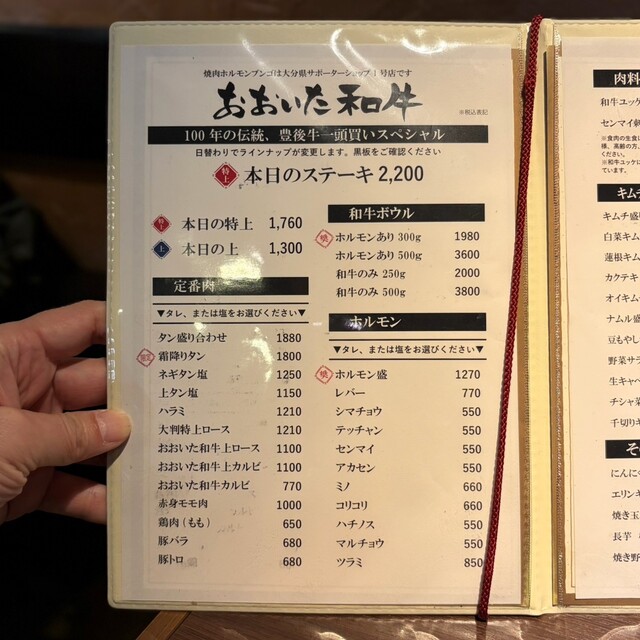 焼肉ホルモンブンゴは大分県サポーターショップ1号店です
おおいた和牛
※税込表記
100年の伝統、豊後牛一頭買いスペシャル
日替わりでラインナップが変更します。黒板をご確認ください
特上 本日のステーキ 2,200
特上 本日の特上 1,760
上 本日の上 1,300
定番肉
▼タレ、または塩をお選びください▼
タン盛り合わせ 1880
限定 霜降りタン 1800
ネギタン塩 1250
上タン塩 1150
ハラミ 1210
大判特上ロース 1210
おおいた和牛上ロース 1100
おおいた和牛上カルビ 1100
おおいた和牛カルビ 770
赤身モモ肉 1000
鶏肉（もも） 650
豚バラ 680
豚トロ 680
和牛ボウル
ホルモンあり 300g 1980
ホルモンあり 500g 3600
和牛のみ 250g 2000
和牛のみ 500g 3800
ホルモン
▼タレ、または塩をお選びください▼
ホルモン盛 1270
レバー 770
シマチョウ 550
テッチャン 550
センマイ 550
アカセン 550
ミノ 660
コリコリ 660
ハチノス 550
マルチョウ 550
ツラミ 850
肉料
和牛ユッケ
センマイ刺
※食肉の生食
様、高齢の方、
ください。
※和牛ユッケに
ています。
キムチ
キムチ盛り
白菜キム
蓮根キム
カクテキ
オイキム
ナムル盛
豆もやし
野菜サラ
生キャベ
チシャ菜
千切りキ
その
にんにく
エリンギ
焼き玉
長芋
焼き野